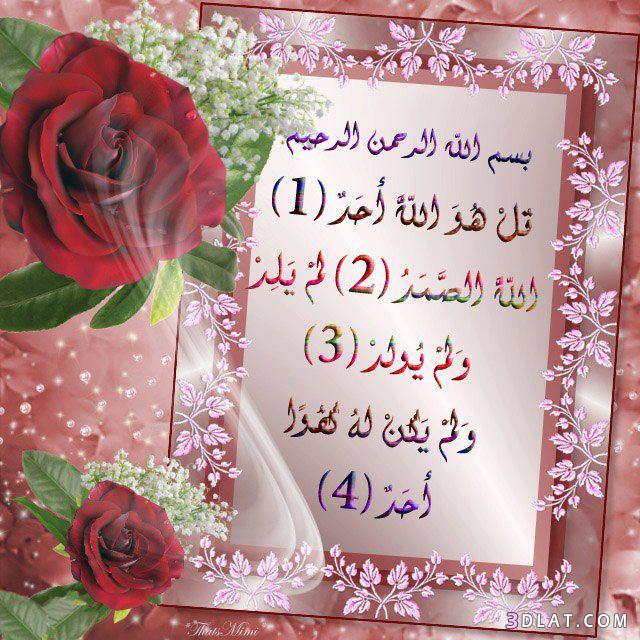 بسم الله الرحمن الرحيم
قلْ هُوَ اللَّهُ أَحَدٌ (1)
اللَّهُ الصَّمَدُ (2) لمْ يَلِدْ
وَلمْ يُولدْ (3)
وَلمْ يَكنْ لهُ كفُوًا
أَحَدٌ (4)
*ThatsMimi*
3DLAT.COM